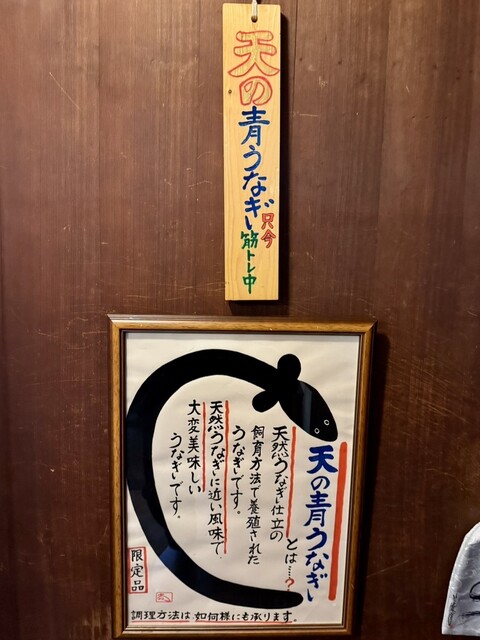 天の
青うなぎぃ
只今
筋トレ中
天の青うなぎぃ
とは…?
天然うなぎぃ仕立の
飼育方法で養殖された
うなぎぃです。
天然うなぎぃに近い風味で、
大変美味しい
うなぎぃです。
限定品
調理方法は如何様にも承ります。